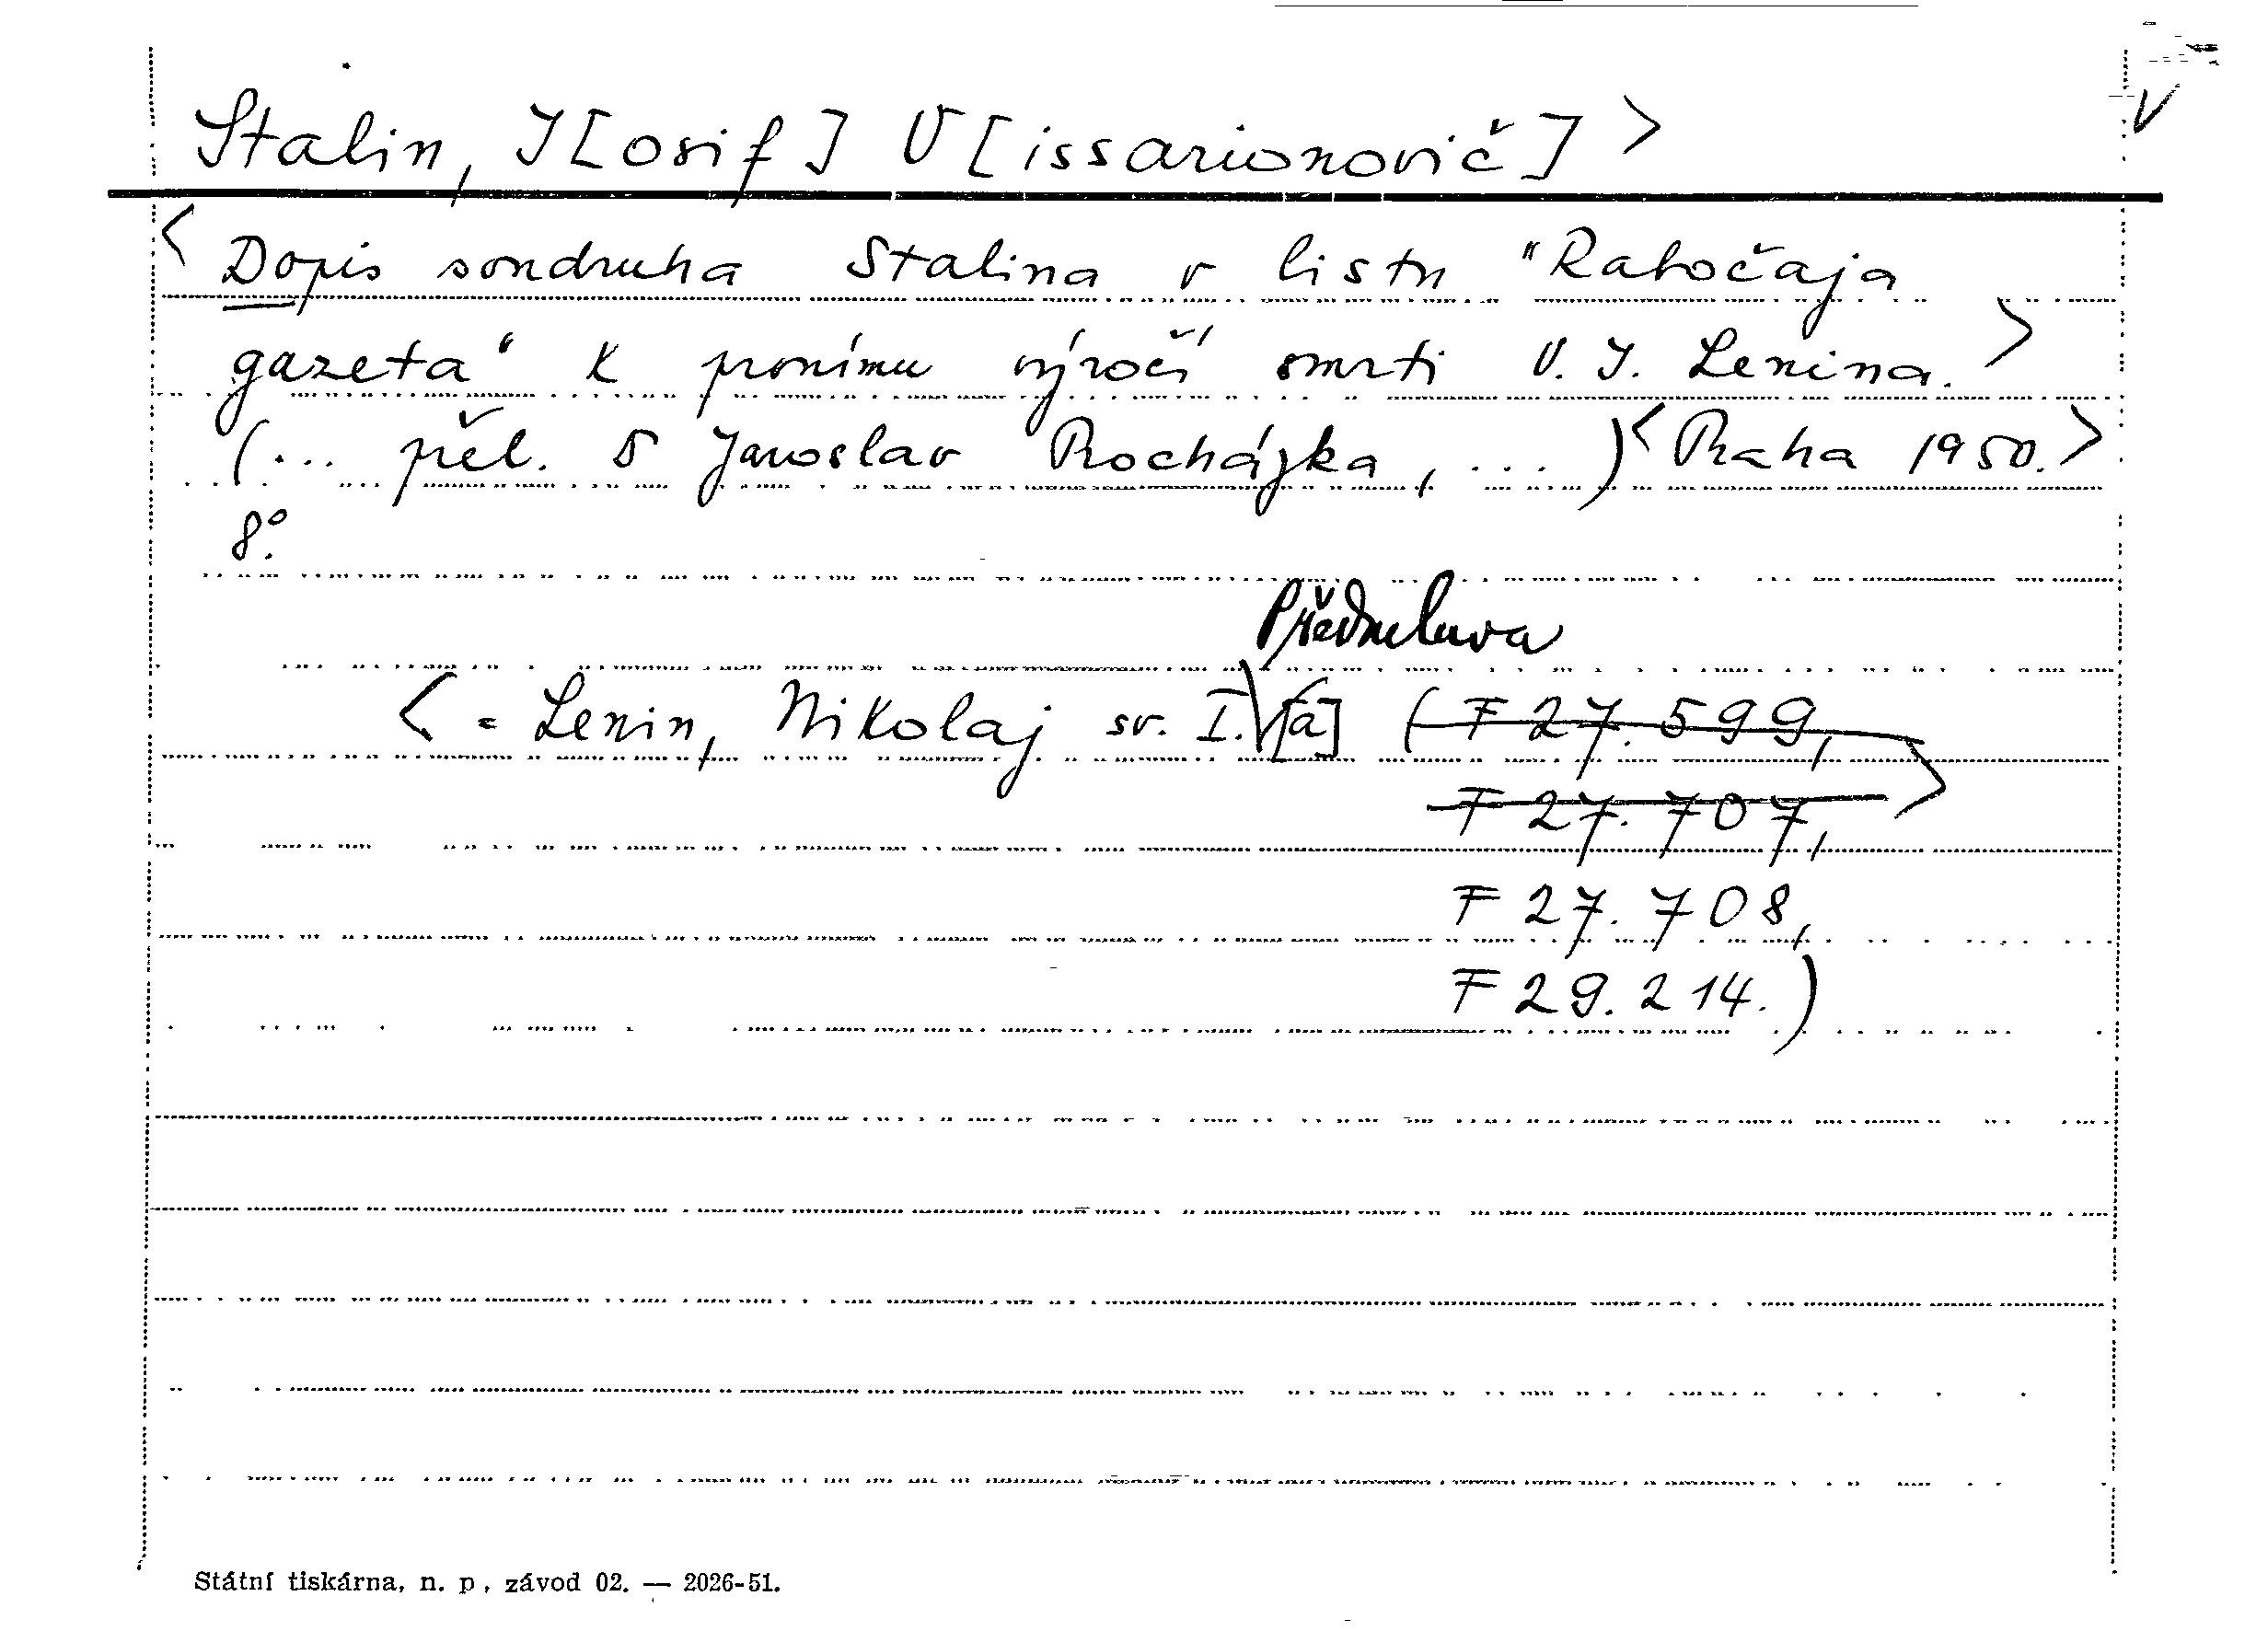 V
Stalin, J[osif] V[issarionovič] >
< Dopis soudruha Stalina v listu "Rabočaja
gazeta" k prvnímu výročí smrti V. J. Lenina. >
(... přel. S Jaroslav Procházka, ...) < Praha 1950. >
8°.
Předmluva
< = Lenin, Nikolaj sv. I. [a] ( F 27.599,
F 27.707, >
F 27.708,
F 29.214.)
Státní tiskárna, n. p., závod 02. — 2026-51.